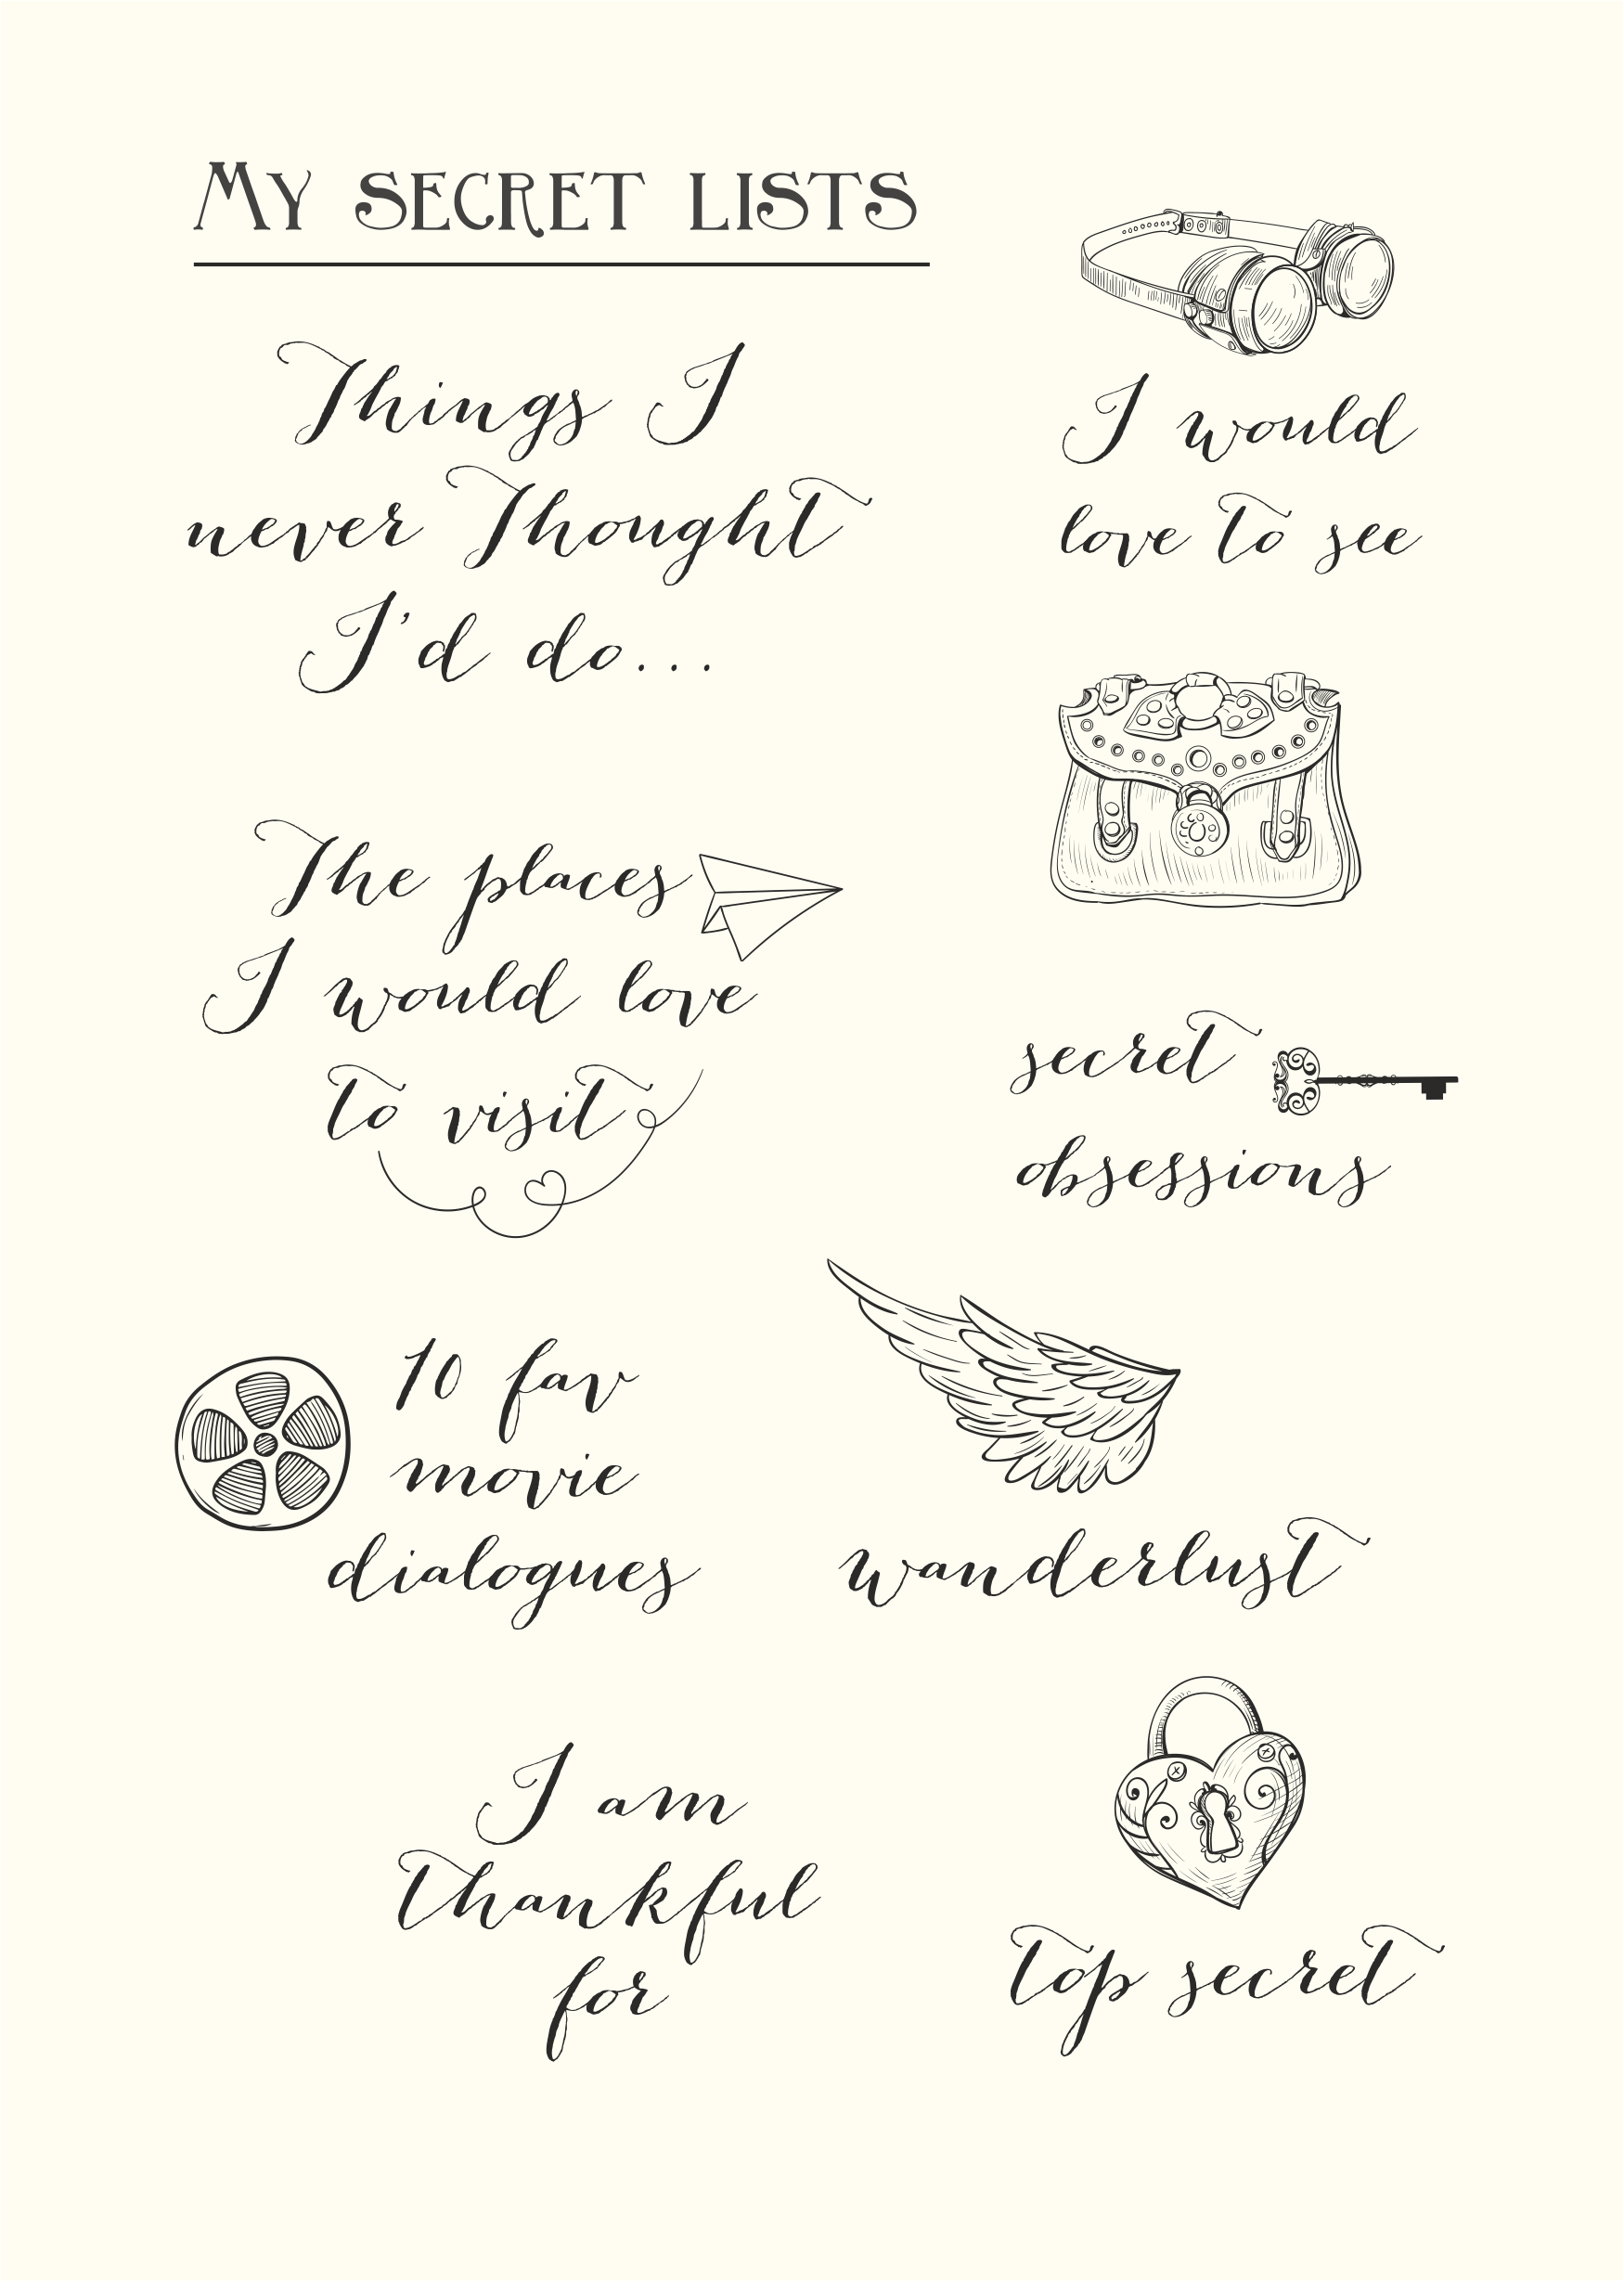 My secret lists
Things I
never Thought
I'd do...
I would
love to see
The places
I would love
to visit
secret
obsessions
10 fav
movie
dialogues
wanderlust
I am
thankful
for
top secret